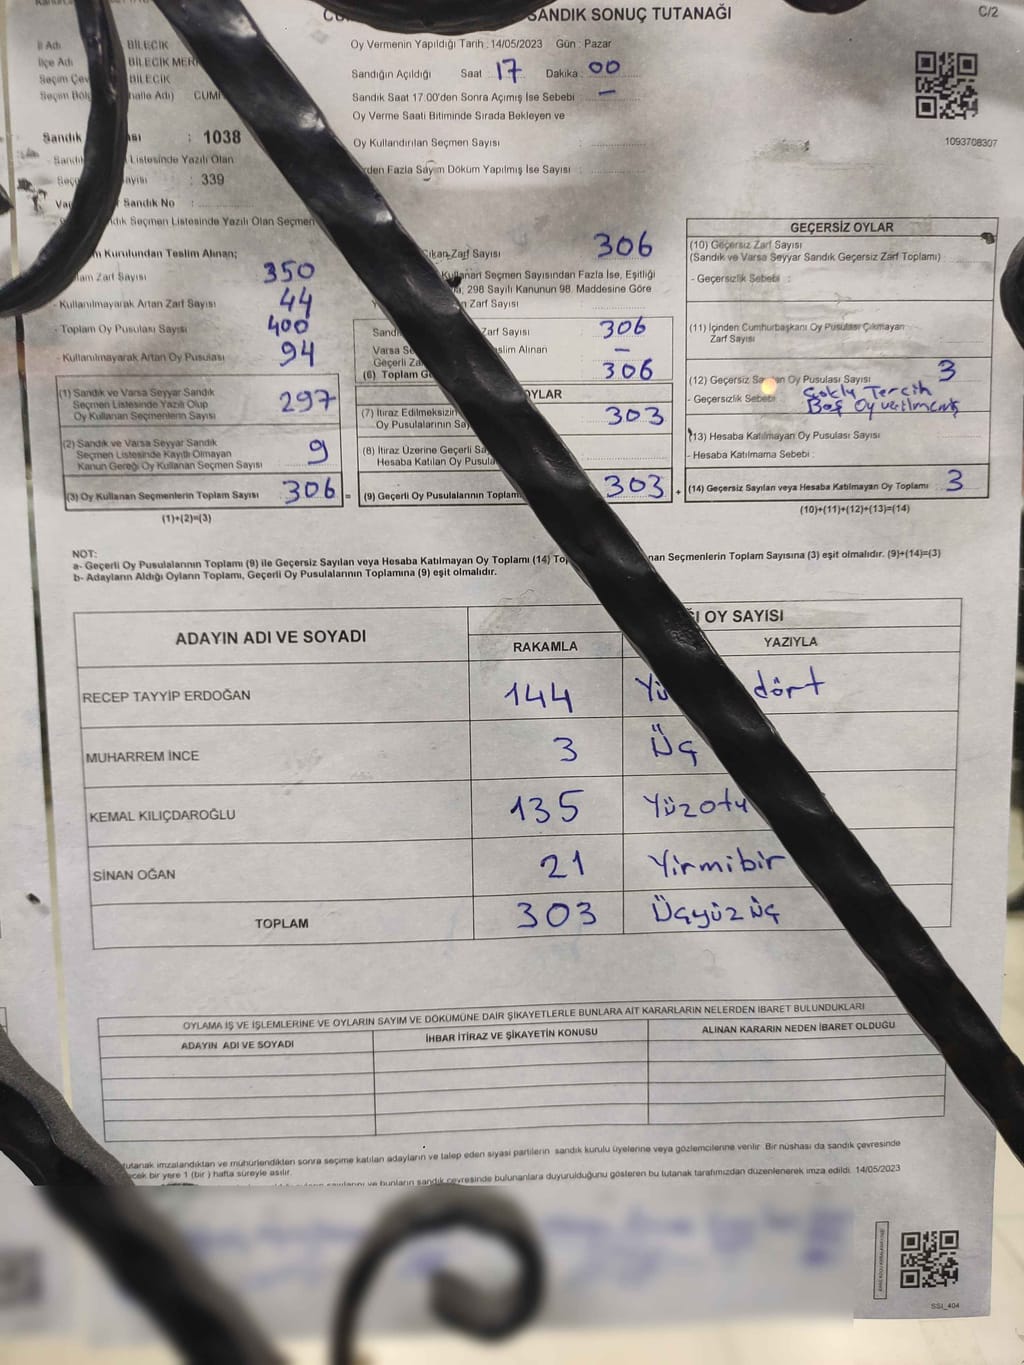 SANDIK SONUÇ TUTANAĞI
C/2
İl Adı BİLECİK
İlçe Adı : BİLECİK
Seçim BİLECİK
Oy Vermenin Yapıldığı Tarih : 14/05/2023 Gün : Pazar
Sandığın Açıldığı Saat 17 Dakika : 00
Sandık Saat 17:00'den Sonra Açımış İse Sebebi : —
Oy Verme Saati Bitiminde Sırada Bekleyen ve
Oy Kullandırılan Seçmen Sayısı :
Fazla Sayım Döküm Yapılmış İse Sayısı :
1093708307
Sandık : 1038
Listesinde Yazılı Olan
: 339
Sandık No :
Seçmen Listesinde Yazılı Olan Seçmen
Kurulundan Teslim Alınan;
Zarf Sayısı 350
- Kullanılmayarak Artan Zarf Sayısı 44
- Toplam Oy Pusulası Sayısı 400
- Kullanılmayarak Artan Oy Pusulası 94
(1) Sandık ve Varsa Seyyar Sandık
Seçmen Listesinde Yazılı Olup
Oy Kullanan Seçmenlerin Sayısı 297
(2) Sandık ve Varsa Seyyar Sandık
Seçmen Listesinde Kayıtlı Olmayan
Kanun Gereği Oy Kullanan Seçmen Sayısı 9
(3) Oy Kullanan Seçmenlerin Toplam Sayısı 306 =
(1)+(2)=(3)
Çıkan Zarf Sayısı 306
Kullanan Seçmen Sayısından Fazla İse, Eşitliği
298 Sayılı Kanunun 98. Maddesine Göre
Zarf Sayısı :
Zarf Sayısı 306
Varsa Teslim Alınan —
(6) Toplam 306
OYLAR
(7) İtiraz Edilmeksizin
Oy Pusulalarının 303
(8) İtiraz Üzerine Geçerli
Hesaba Katılan Oy
(9) Geçerli Oy Pusulalarının Toplam 303 +
GEÇERSİZ OYLAR
(10) Geçersiz Zarf Sayısı
(Sandık ve Varsa Seyyar Sandık Geçersiz Zarf Toplamı) :
- Geçersizlik Sebebi :
(11) İçinden Cumhurbaşkanı Oy Pusulası Çıkmayan
Zarf Sayısı :
(12) Geçersiz Oy Pusulası Sayısı 3
- Geçersizlik Sebebi Çoklu Tercih
Boş Oy verilmemiş
(13) Hesaba Katılmayan Oy Pusulası Sayısı
- Hesaba Katılmama Sebebi :
(14) Geçersiz Sayılan veya Hesaba Katılmayan Oy Toplamı : 3
(10)+(11)+(12)+(13)=(14)
NOT:
a- Geçerli Oy Pusulalarının Toplamı (9) ile Geçersiz Sayılan veya Hesaba Katılmayan Oy Toplamı (14) Seçmenlerin Toplam Sayısına (3) eşit olmalıdır. (9)+(14)=(3)
b- Adayların Aldığı Oyların Toplamı, Geçerli Oy Pusulalarının Toplamına (9) eşit olmalıdır.
ADAYIN ADI VE SOYADI
OY SAYISI
RAKAMLA YAZIYLA
RECEP TAYYİP ERDOĞAN 144 dört
MUHARREM İNCE 3 Üç
KEMAL KILIÇDAROĞLU 135
SİNAN OĞAN 21 Yirmibir
TOPLAM 303 Üçyüz üç
OYLAMA İŞ VE İŞLEMLERİNE VE OYLARIN SAYIM VE DÖKÜMÜNE DAİR ŞİKAYETLERLE BUNLARA AİT KARARLARIN NELERDEN İBARET BULUNDUKLARI
ADAYIN ADI VE SOYADI İHBAR İTİRAZ VE ŞİKAYETİN KONUSU ALINAN KARARIN NEDEN İBARET OLDUĞU
tutanak imzalandıktan ve mühürlendikten sonra seçime katılan adayların ve talep eden siyasi partilerin sandık kurulu üyelerine veya gözlemcilerine verilir. Bir nüshası da sandık çevresinde
bir yere 1 (bir) hafta süreyle asılır.
ve bunların sandık çevresinde bulunanlara duyurulduğunu gösteren bu tutanak tarafımızdan düzenlenerek imza edildi. 14/05/2023
SSI_404